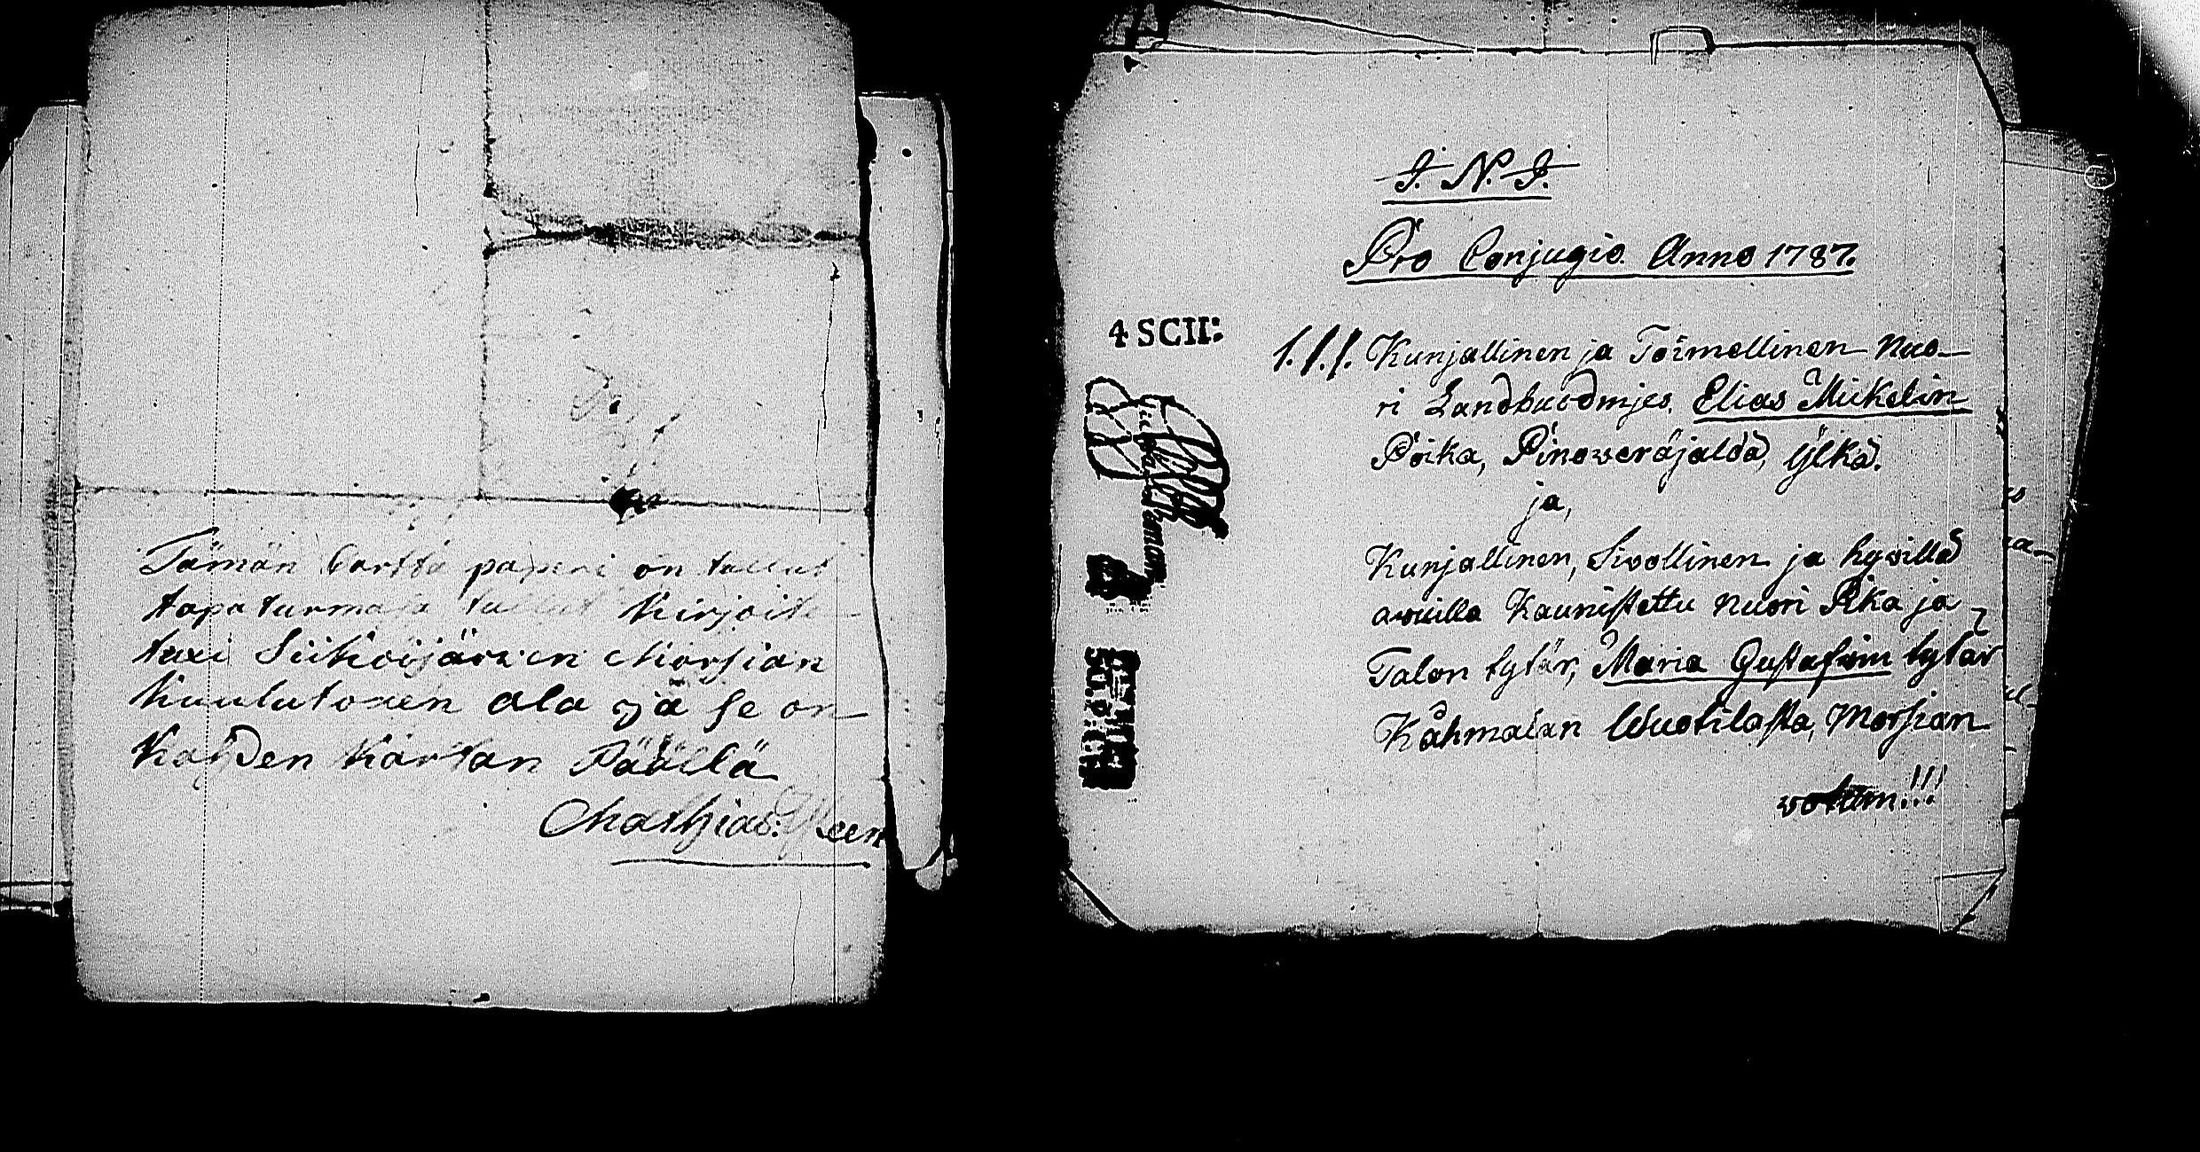 Tämän Cartta paperi on tullut
tapaturmasa tullut kirjoite-
tuxi Siikoisjärwen Morsian
kuulutoxen ala ja se on
Kahden Kartan Päällä
Mathias
I. N. I.
Pro Conjugio. Anno 1787.
4 SCH:
1.!.!. Kunjallinen ja Toimellinen nuo-
ri Landbuodmjes. Elias Mickelin
Poika, Pinoweräjaldä, ylkä.
ja,
Kunjallinen, Siwollinen ja hywillä
awuilla Kaunistettu nuori Pika ja
Talon tytär, Maria Gustafwin tytär
Kåhmalan Wuotilasta, Morsian